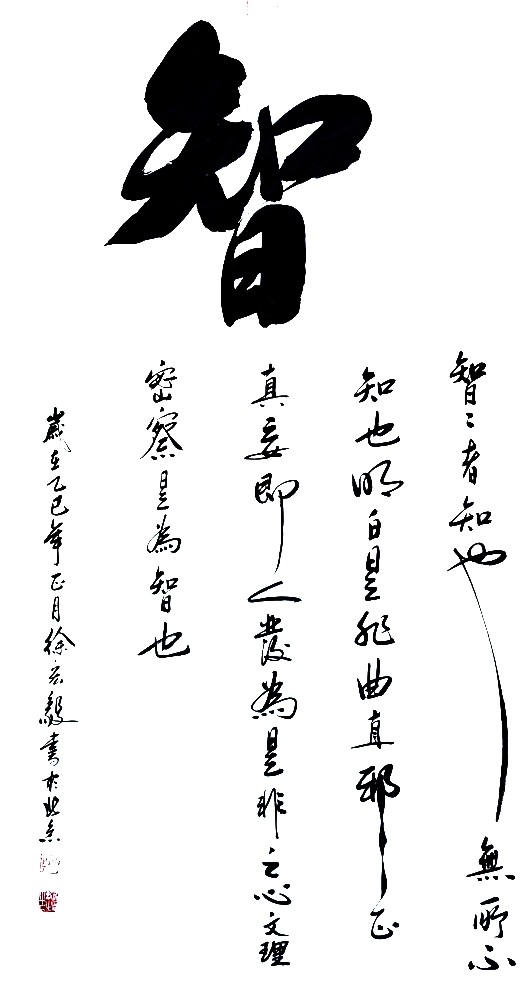 智
智〻者知也無所不
知也明白是非曲直邪正
真妄即人發為是非之心文理
密察是為智也
歲在乙巳年正月徐宏毅書於北京